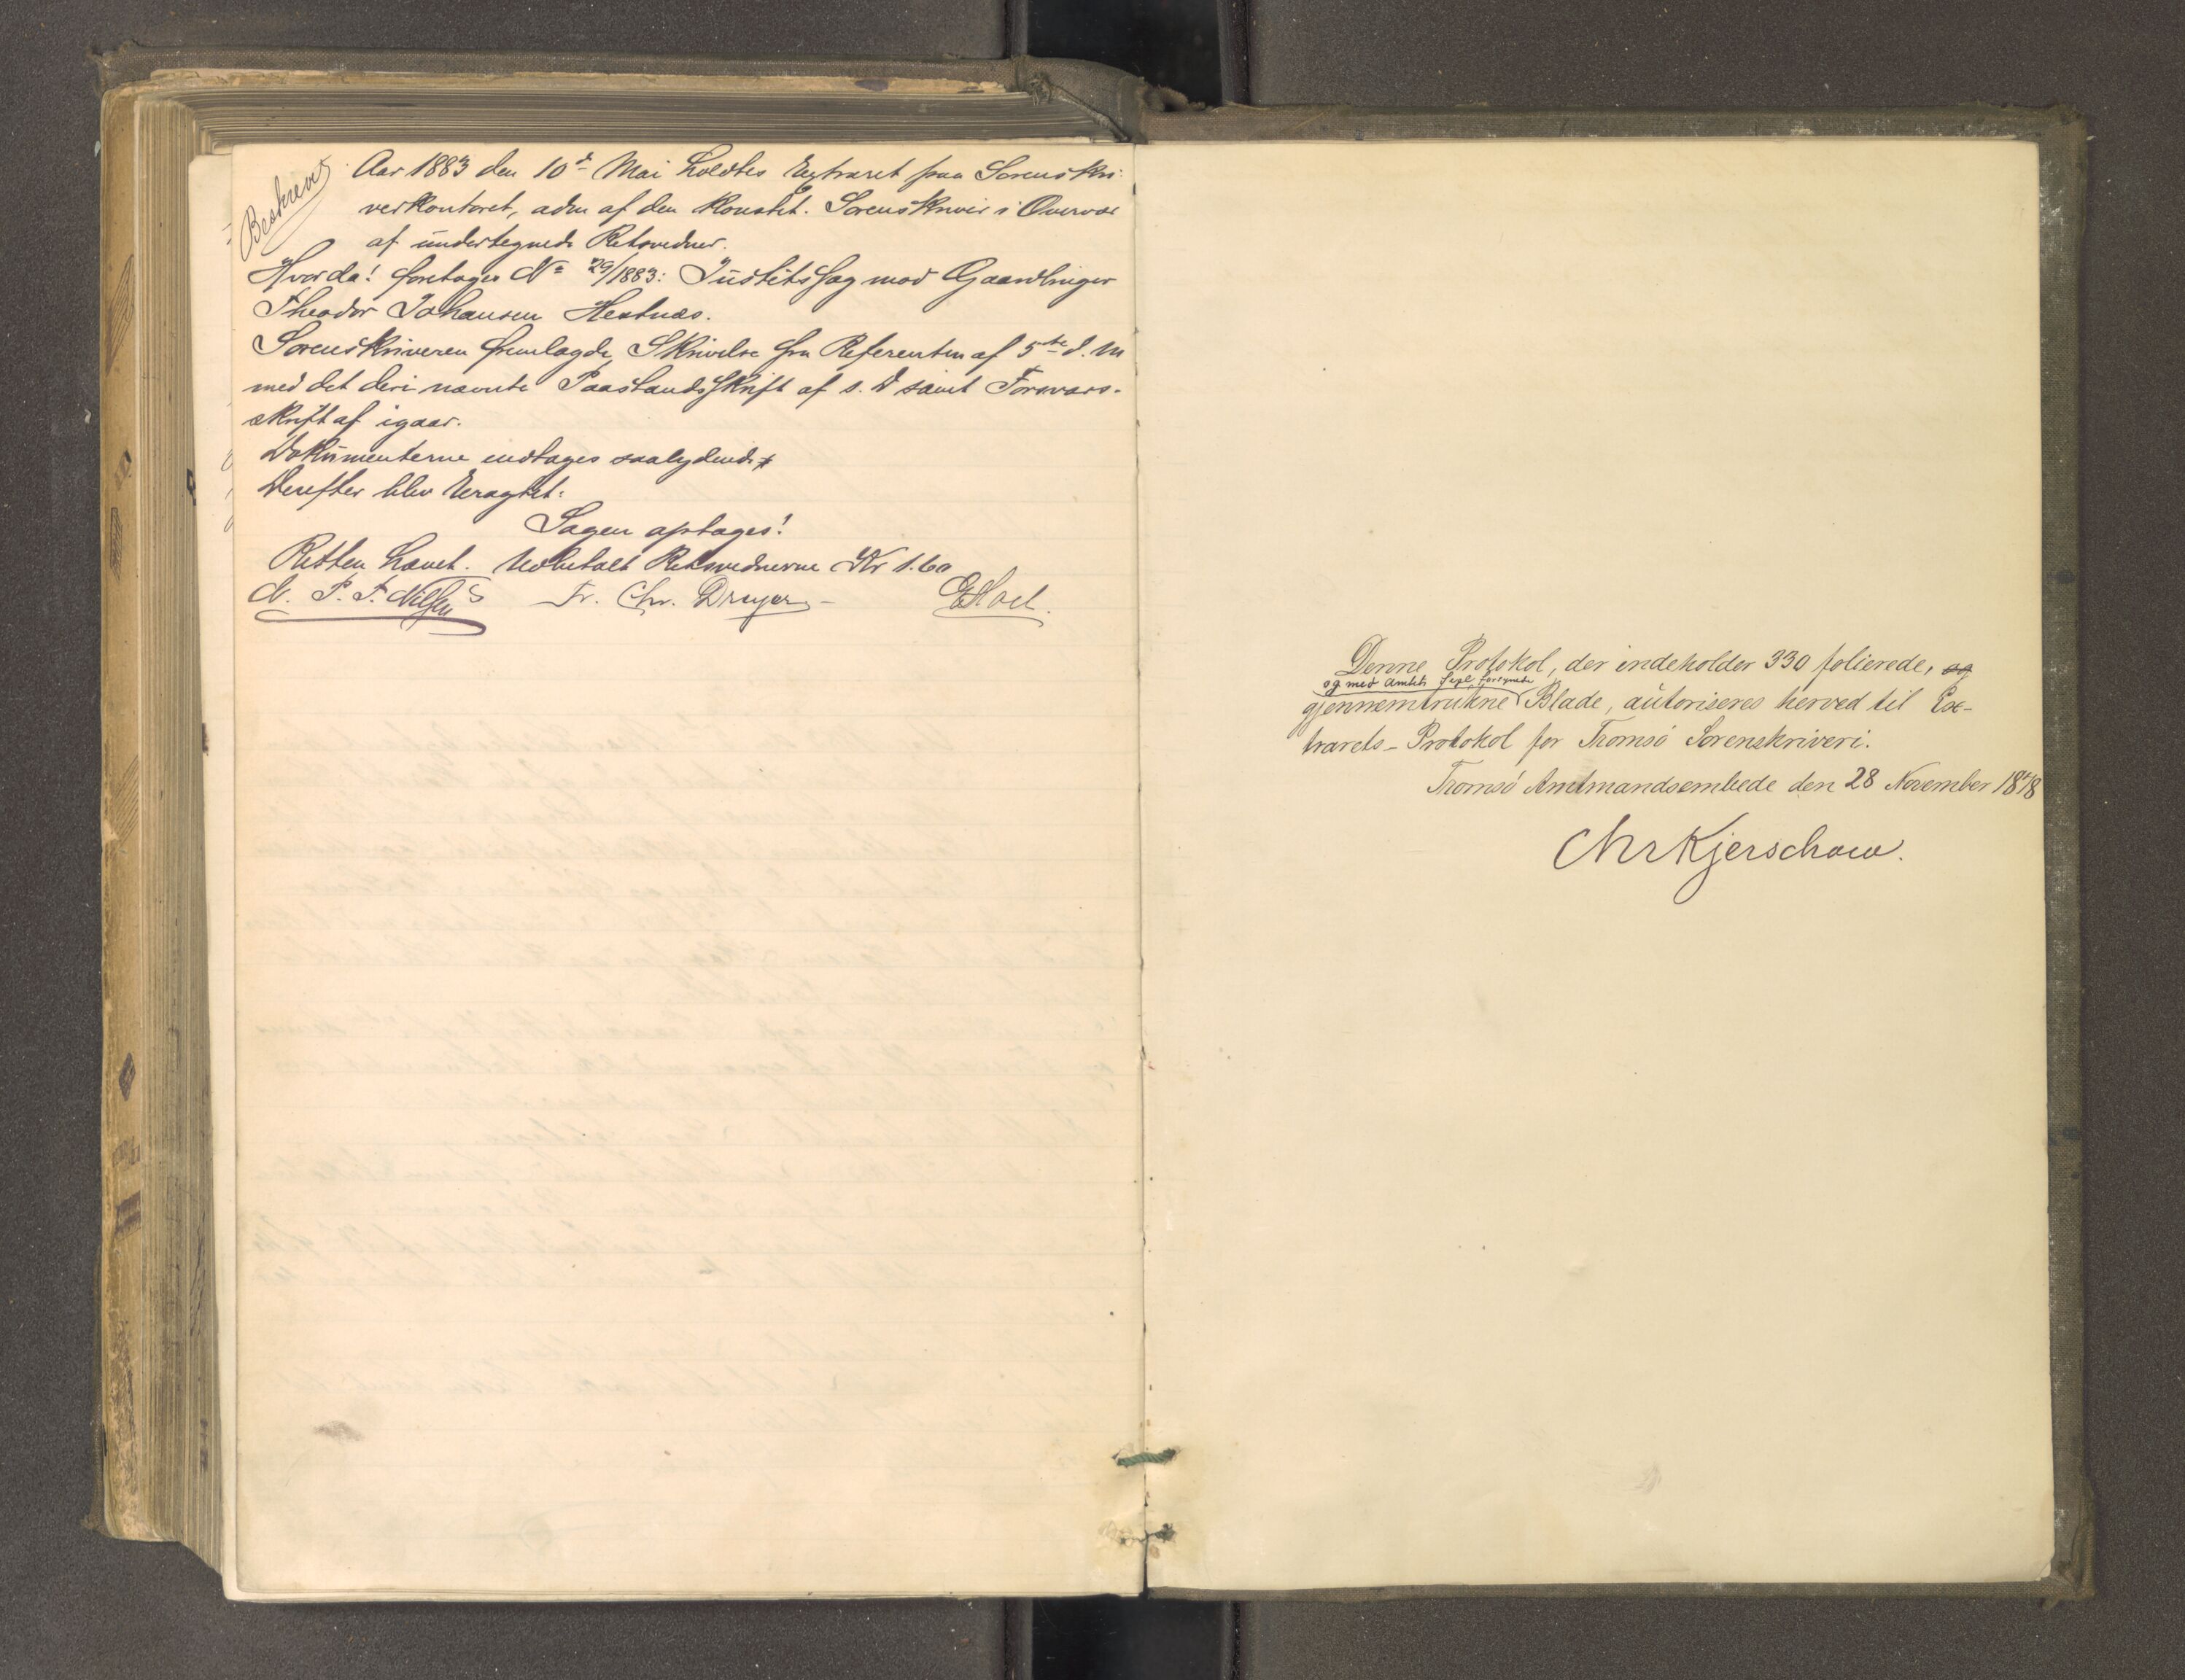 Beskrevet
Aar 1883 den 10d Mai holdtes Extraret paa Sorenskri-
verkontoret, adm af den konstit. Sorenskriver i Overvær
af undertegnede Retsvidner.
Hvorda! foretoges No 29/1883: Justitssag mod Gaardbruger
Theodor Johansen Hestnæs.
Sorenskriveren fremlagde Skrivelse fra Referenten af 5te d. M
med det deri nævnte Paastandsskrift af s. D samt Forsvars-
skrift af igaar.
Dokumenterne indtages saalydende
Derefter blev Eragtet:
Sagen optages!
Retten hævet. Udbetalt Retsvidnerne Kr 1.60
N. P. F. Nilsen Fr. Chr. Dreyer
Denne Protokol, der indeholder 330 folierede, og
og med Amtets Segl forsynede
gjennemtrukne Blade, autoriseres herved til Ex-
trarets-Protokol for Tromsö Sorenskriveri.
Tromsö Amtmandsembede den 28 November 1878
Chr Kjerschow.